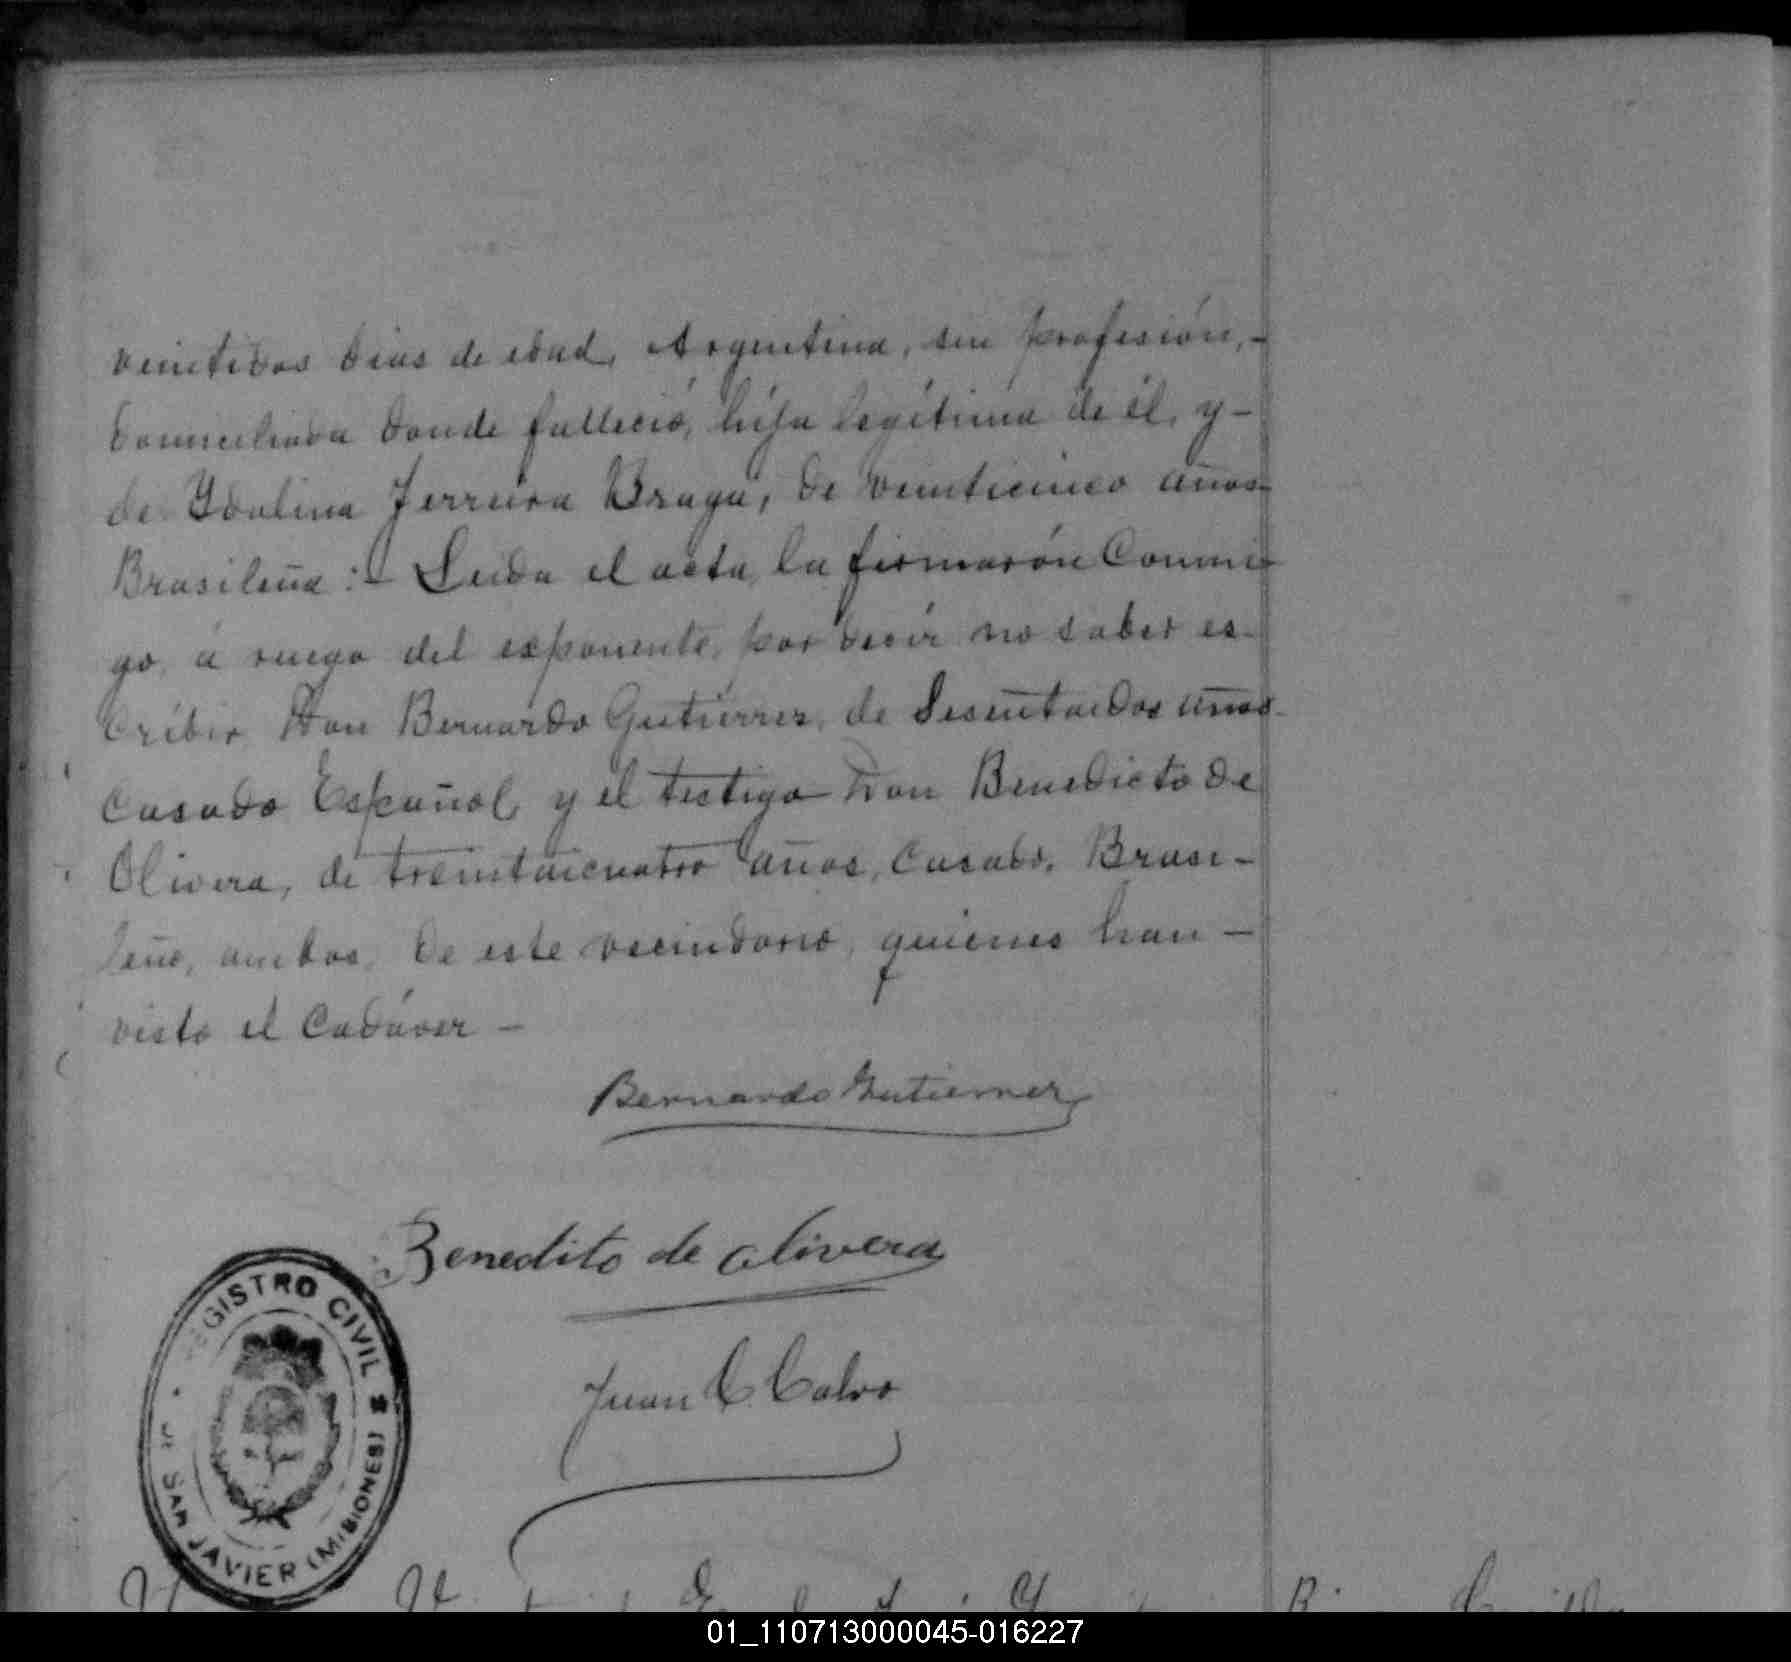 veintidos dias de edad, Argentina, sin profesión,-
domiciliada donde falleció, hija legítima de él, y-
de Idolina Ferreira Braga, de veinticinco años-
Brasileña:- Leida el acta, la firmarón Conmi-
go, á ruego del exponente, por decir no saber es-
cribir Don Bernardo Gutierrez, de Sesentaidos años-
Casado Español, y el testigo Don Benedicto de
Olivera, de treintaicuatro años, Casado, Brasi-
leño, ambos, de este vecindario, quienes han-
visto el Cadáver-
Bernardo Gutierrez
Benedito de Olivera
Juan C. Calvo
REGISTRO CIVIL
SAN JAVIER (MISIONES)
01_110713000045-016227